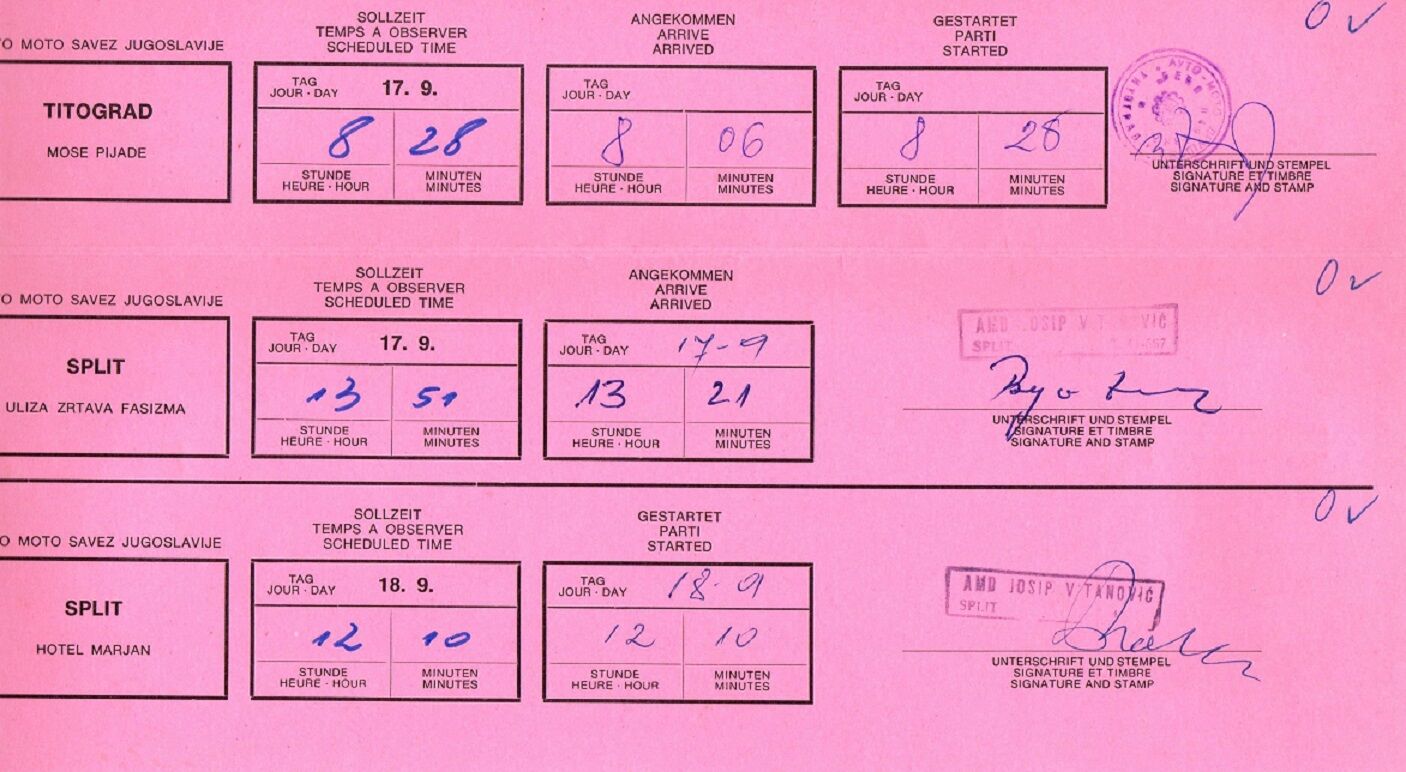 O MOTO SAVEZ JUGOSLAVIJE
TITOGRAD
MOSE PIJADE
SOLLZEIT
TEMPS A OBSERVER
SCHEDULED TIME
TAG
JOUR · DAY 17. 9.
8 28
STUNDE MINUTEN
HEURE · HOUR MINUTES
ANGEKOMMEN
ARRIVE
ARRIVED
TAG
JOUR · DAY
8 06
STUNDE MINUTEN
HEURE · HOUR MINUTES
GESTARTET
PARTI
STARTED
TAG
JOUR · DAY
8 28
STUNDE MINUTEN
HEURE · HOUR MINUTES
0 v
UNTERSCHRIFT UND STEMPEL
SIGNATURE ET TIMBRE
SIGNATURE AND STAMP
O MOTO SAVEZ JUGOSLAVIJE
SPLIT
ULIZA ZRTAVA FASIZMA
SOLLZEIT
TEMPS A OBSERVER
SCHEDULED TIME
TAG
JOUR · DAY 17. 9.
13 51
STUNDE MINUTEN
HEURE · HOUR MINUTES
ANGEKOMMEN
ARRIVE
ARRIVED
TAG
JOUR · DAY 17-9
13 21
STUNDE MINUTEN
HEURE · HOUR MINUTES
0 v
AMD JOSIP
SPLIT
UNTERSCHRIFT UND STEMPEL
SIGNATURE ET TIMBRE
SIGNATURE AND STAMP
O MOTO SAVEZ JUGOSLAVIJE
SPLIT
HOTEL MARJAN
SOLLZEIT
TEMPS A OBSERVER
SCHEDULED TIME
TAG
JOUR · DAY 18. 9.
12 10
STUNDE MINUTEN
HEURE · HOUR MINUTES
GESTARTET
PARTI
STARTED
TAG
JOUR · DAY 18-9
12 10
STUNDE MINUTEN
HEURE · HOUR MINUTES
0 v
AMD JOSIP V TANOVIĆ
SPLIT
UNTERSCHRIFT UND STEMPEL
SIGNATURE ET TIMBRE
SIGNATURE AND STAMP